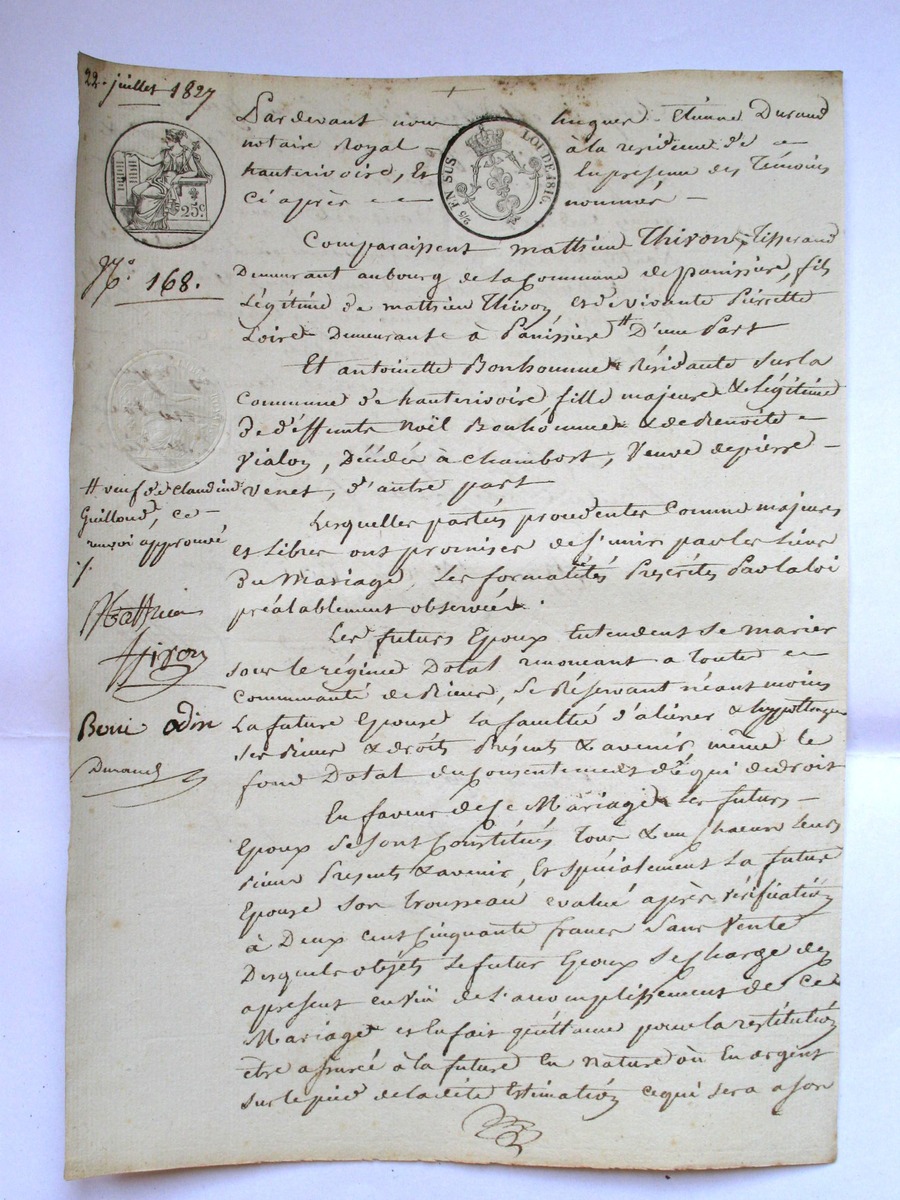 22 juillet 1827
Pardevant nous hugues - Etienne Durand
notaire Royal à la residence de
hauterivoire, Et En presence des Témoins
ci après nommés -
25 EN SUS
LOI DE 1816.
25c
No. 168.
Comparaissent mathieu Thivon, Tisserand
Demeurant au bourg de la Commune de panissiere, fils
Légitime de mathieu Thivon, et de vivante Pierrette
Loire Demeurante à Panissiere # D'une Part
Et antoinette Bonhomme Résidante sur la
Commune de hauterivoire fille majeure & Légitime
de deffunts Noël Bonhomme & de Benoite
Vialon, Décédés à Chambost, Veuve de pierre
Venet, d'autre part
# veuf de Claudine
Guilloud, ce
renvoi approuvé
./.
Mathieu
Thivon
Beni odin
Durand
Lesquelles partiés procedentes Comme majeures
et Libres ont promises de s'unir par les Liens
du Mariage, Les formalités Prescrites Par la loi
préalablement observées.
Les futurs Epoux Entendent se marier
sous le régime Dotal renonçant a Toute
Communauté de Biens, se Réservant néantmoins
La future Epouse La faculté d'aliéner & hypothequer
ses Biens & droits Présents & avenir, même le
fond Dotal du consentement de qui de droit
En faveur de Ce Mariage Les futurs
Epoux se sont Constitués Tous & un chacun Leurs
Biens Presents & avenir, Et spécialement La future
Epouse son Trousseau, evalué après vérification
à Deux cent Cinquante francs Sans Vente
Desquels objets Le futur Epoux se charge dez
apresent en vüe de L'accomplissement de Ce
Mariage et En fait quittance pour la restitution
être assurée à la future En nature ou En argent
sur le pied de la dite Estimation ce qui sera a son